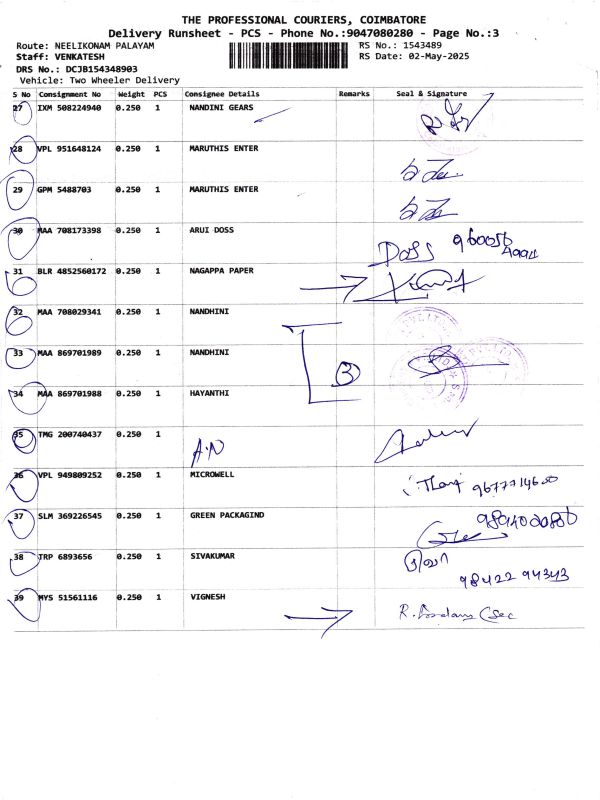 THE PROFESSIONAL COURIERS, COIMBATORE
Delivery Runsheet - PCS - Phone No.:9047080280 - Page No.:3
Route: NEELIKONAM PALAYAM
RS No.: 1543489
Staff: VENKATESH
RS Date: 02-May-2025
DRS No.: DCJB154348903
Vehicle: Two Wheeler Delivery
S No Consignment No Weight PCS Consignee Details Remarks Seal & Signature
27 IXM 508224940 0.250 1 NANDINI GEARS
28 VPL 951648124 0.250 1 MARUTHIS ENTER
29 GPM 5488703 0.250 1 MARUTHIS ENTER
30 MAA 708173398 0.250 1 ARUI DOSS DOSS
31 BLR 4852560172 0.250 1 NAGAPPA PAPER
32 MAA 708029341 0.250 1 NANDHINI
33 MAA 869701989 0.250 1 NANDHINI 3
34 MAA 869701988 0.250 1 HAYANTHI
35 TMG 200740437 0.250 1 A.N
36 VPL 949809252 0.250 1 MICROWELL
37 SLM 369226545 0.250 1 GREEN PACKAGIND
38 TRP 6893656 0.250 1 SIVAKUMAR 98422 94343
39 MYS 51561116 0.250 1 VIGNESH